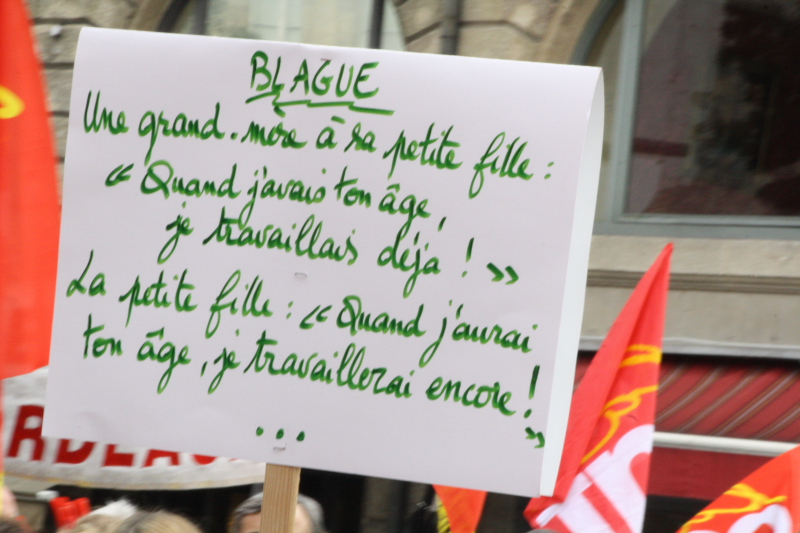 BLAGUE
Une grand.mère à sa petite fille :
« Quand j'avais ton âge,
je travaillais déjà ! »
La petite fille : « Quand j'aurai
ton âge, je travaillerai encore !
»
...